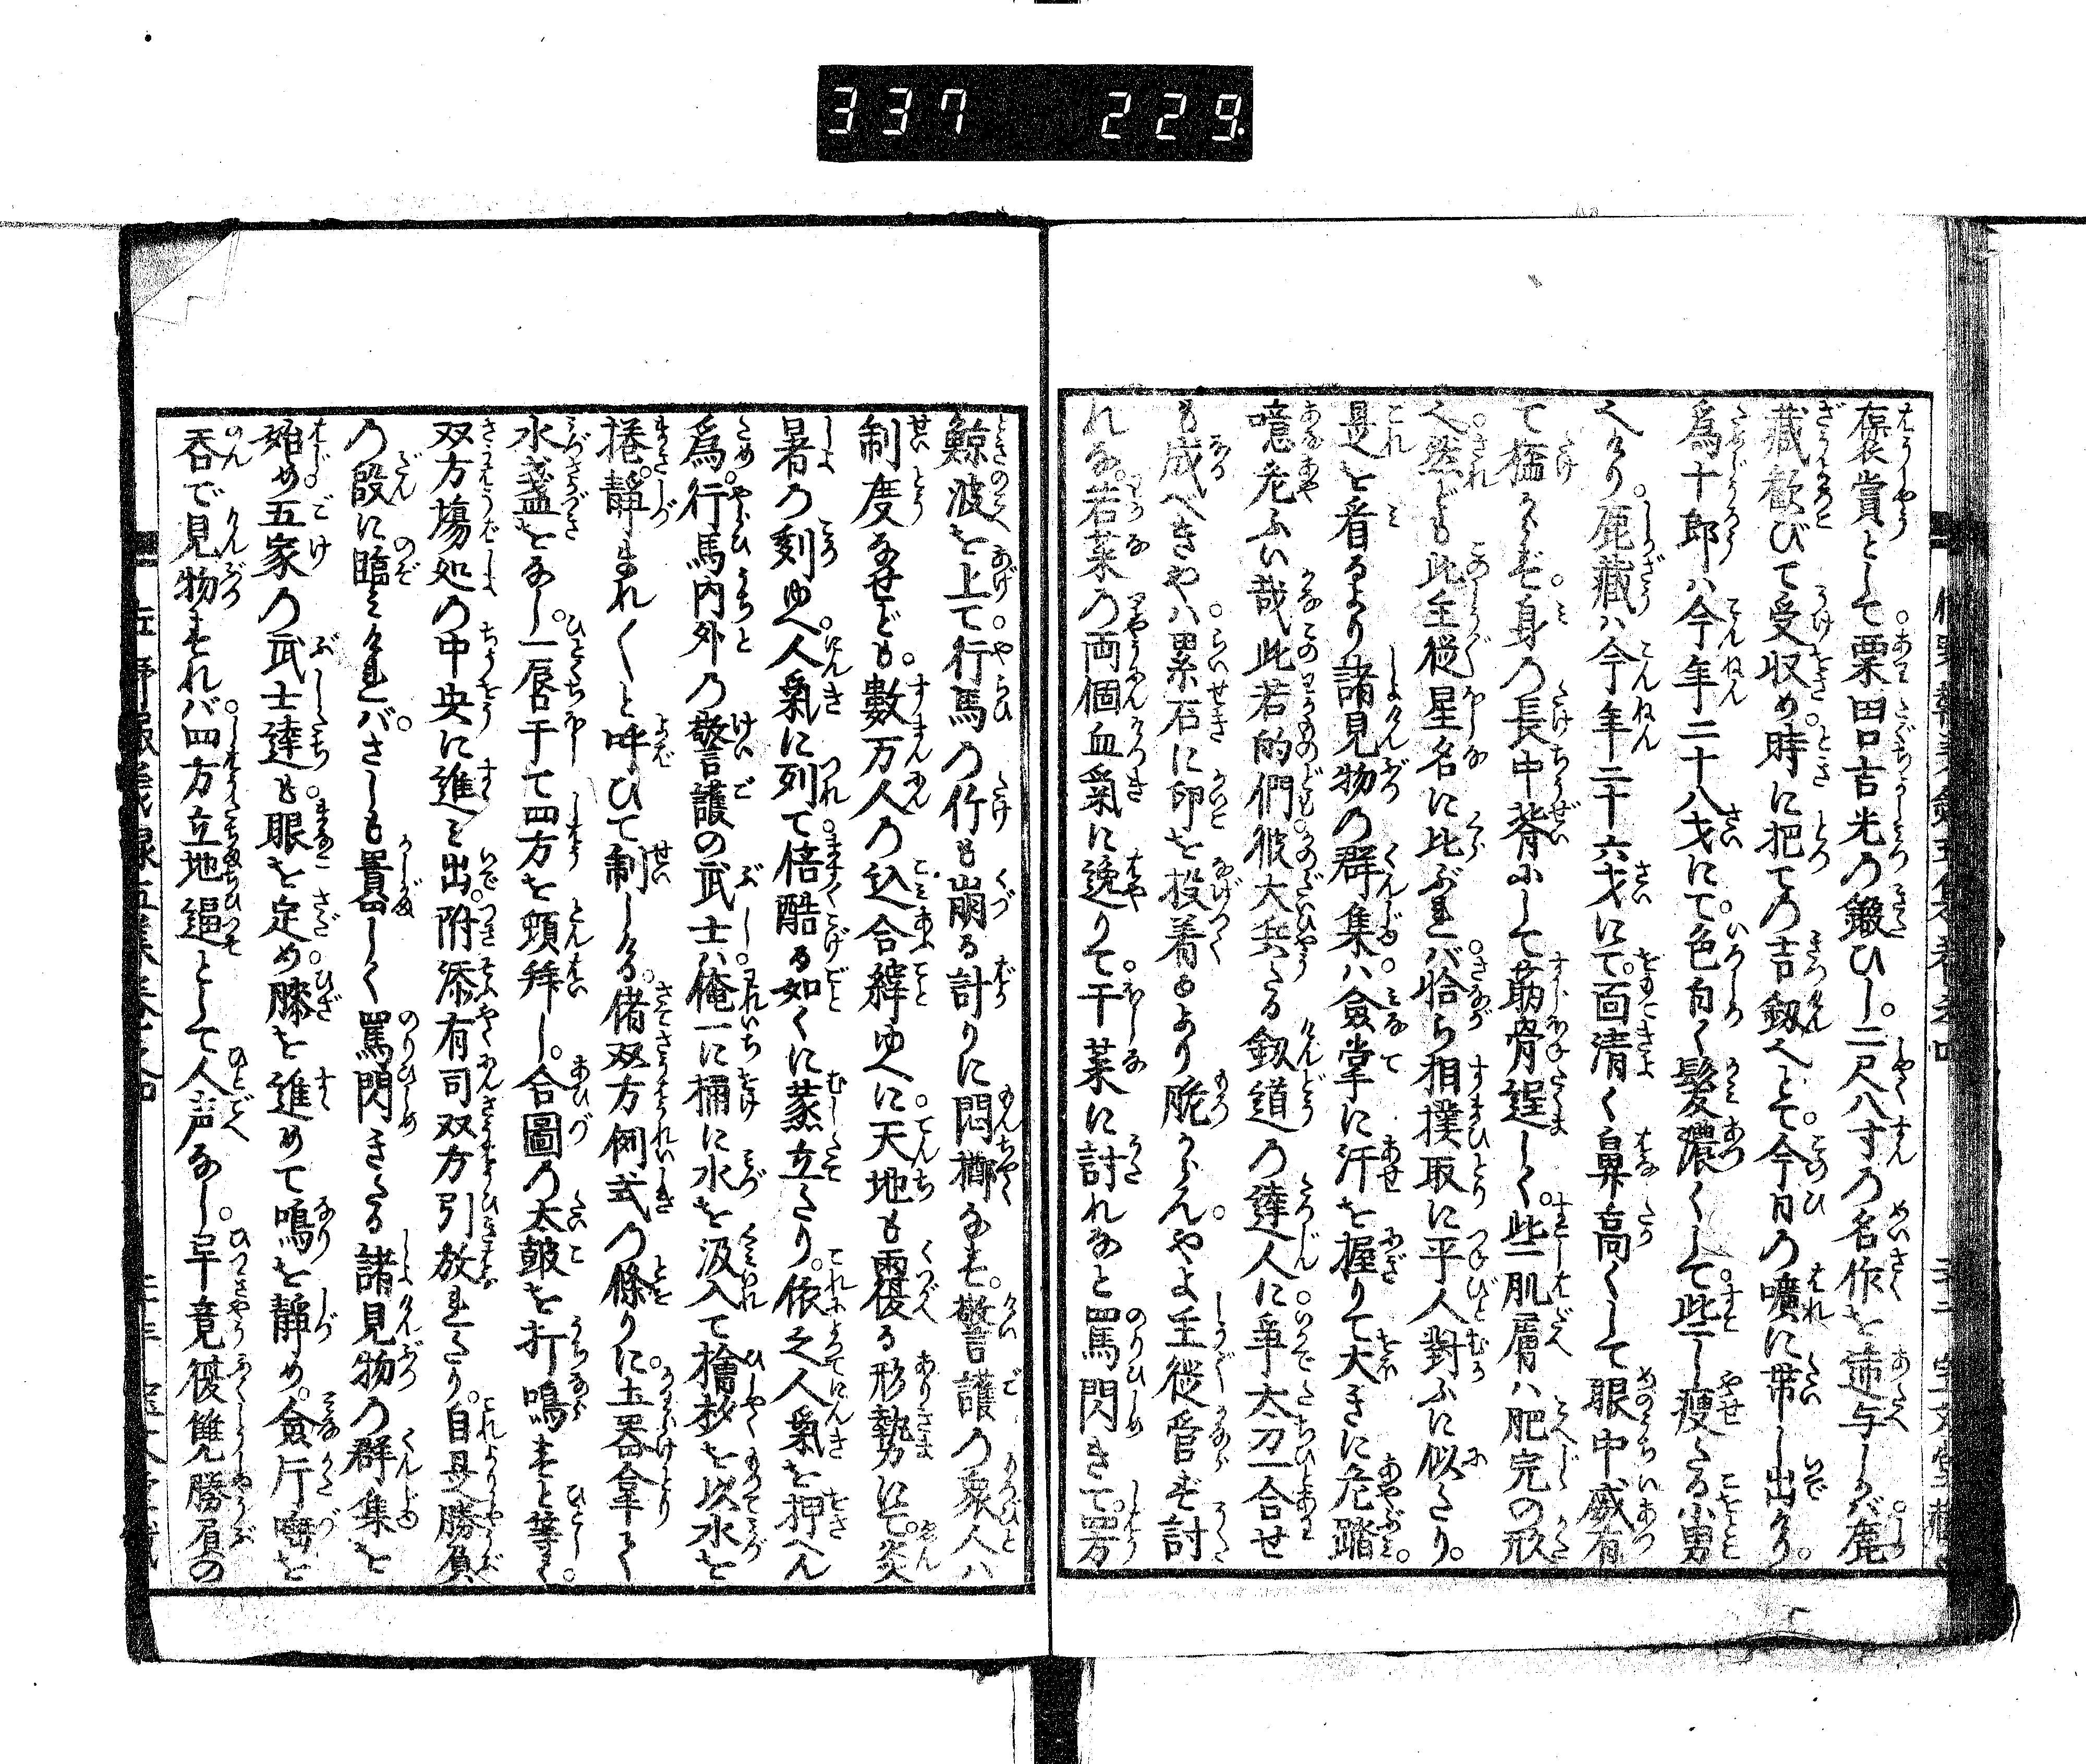 337 229
褒賞として。粟田口吉光の鍛ひし。二尺八寸の名作を譁与しかバ。鹿
藏歓びて受収め。時に把ての吉釼へとて。今日の曠に帯し出けり。
爲十郎ハ今年二十八才にて。色白く髪濃くして。些し痩たる小男
也けり。鹿藏ハ今年二十六才にて。面清く鼻高くして眼中威有
て猛からず。身の長中背にして筋骨逞しく。些し肌膚ハ肥完の形
也。然ども此主從星名に比ぶれバ。恰ら相撲取に平人對ふに似たり。
是を看るより諸見物の群集ハ。僉掌に汗を握りて大きに危踏。
噫危ふい哉此若的們。彼大兵たる釼道の達人に。爭太刀一合せ
も成べきや。累石に卵を投着るより脆からんや。よ主從管ず討
れな。若菜の両個血氣に逸りて。干菜に討れなと罵閃きて。四方
鯨波を上て。行馬の竹も崩る計りに悶擲なす。警護の衆人ハ
制度なせども。數万人の込合縡ゆへに。天地も覆る形勢にて。炎
暑の刻ゆへ。人氣に列て。倍酷る如くに蒸立たり。依之人氣を押へん
爲。行馬内外の警護の武士ハ。俺一に桶に水を汲入て檜杪を以水を
捲。靜まれ〱と呼ひて制しける。偖双方例式の條りに。土器拿て
水盞をなし。一唇干て四方を頓拜し。合圖の太皷を打鳴すと等く。
双方塲処の中央に進み出。附添有司双方引放れたり。自是勝負
の段に臨みけれバ。さしも囂しく罵閃きたる諸見物の群集を
始め五家の武士達も。眼を定め。膝を進めて鳴を靜め。僉片唾を
呑で見物すれバ。四方立地逼として人声なし。畢竟復讐勝負の